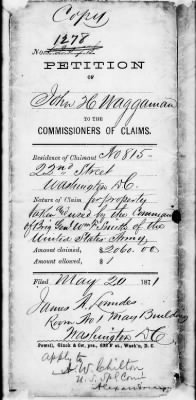 Copy
1278
No.
PETITION
OF
John H Waggaman
TO THE
COMMISSIONERS OF CLAIMS.
Residence of Claimant No 815-
22nd Street
Washington D.C.
Nature of Claim for property
taken & used by the Command
of Brig Genl Wm F. Smith of the
United States Army
Amount claimed, $2060.00
Amount allowed, $
Filed May 20 1871
James H Lowndes
Room No 1 May Building
Washington D.C
Powell, Ginck & Co., prs, 632 F st., Wash'n, D. C.
apply to
W Chilton
U.S. Spl Com
Alexandria